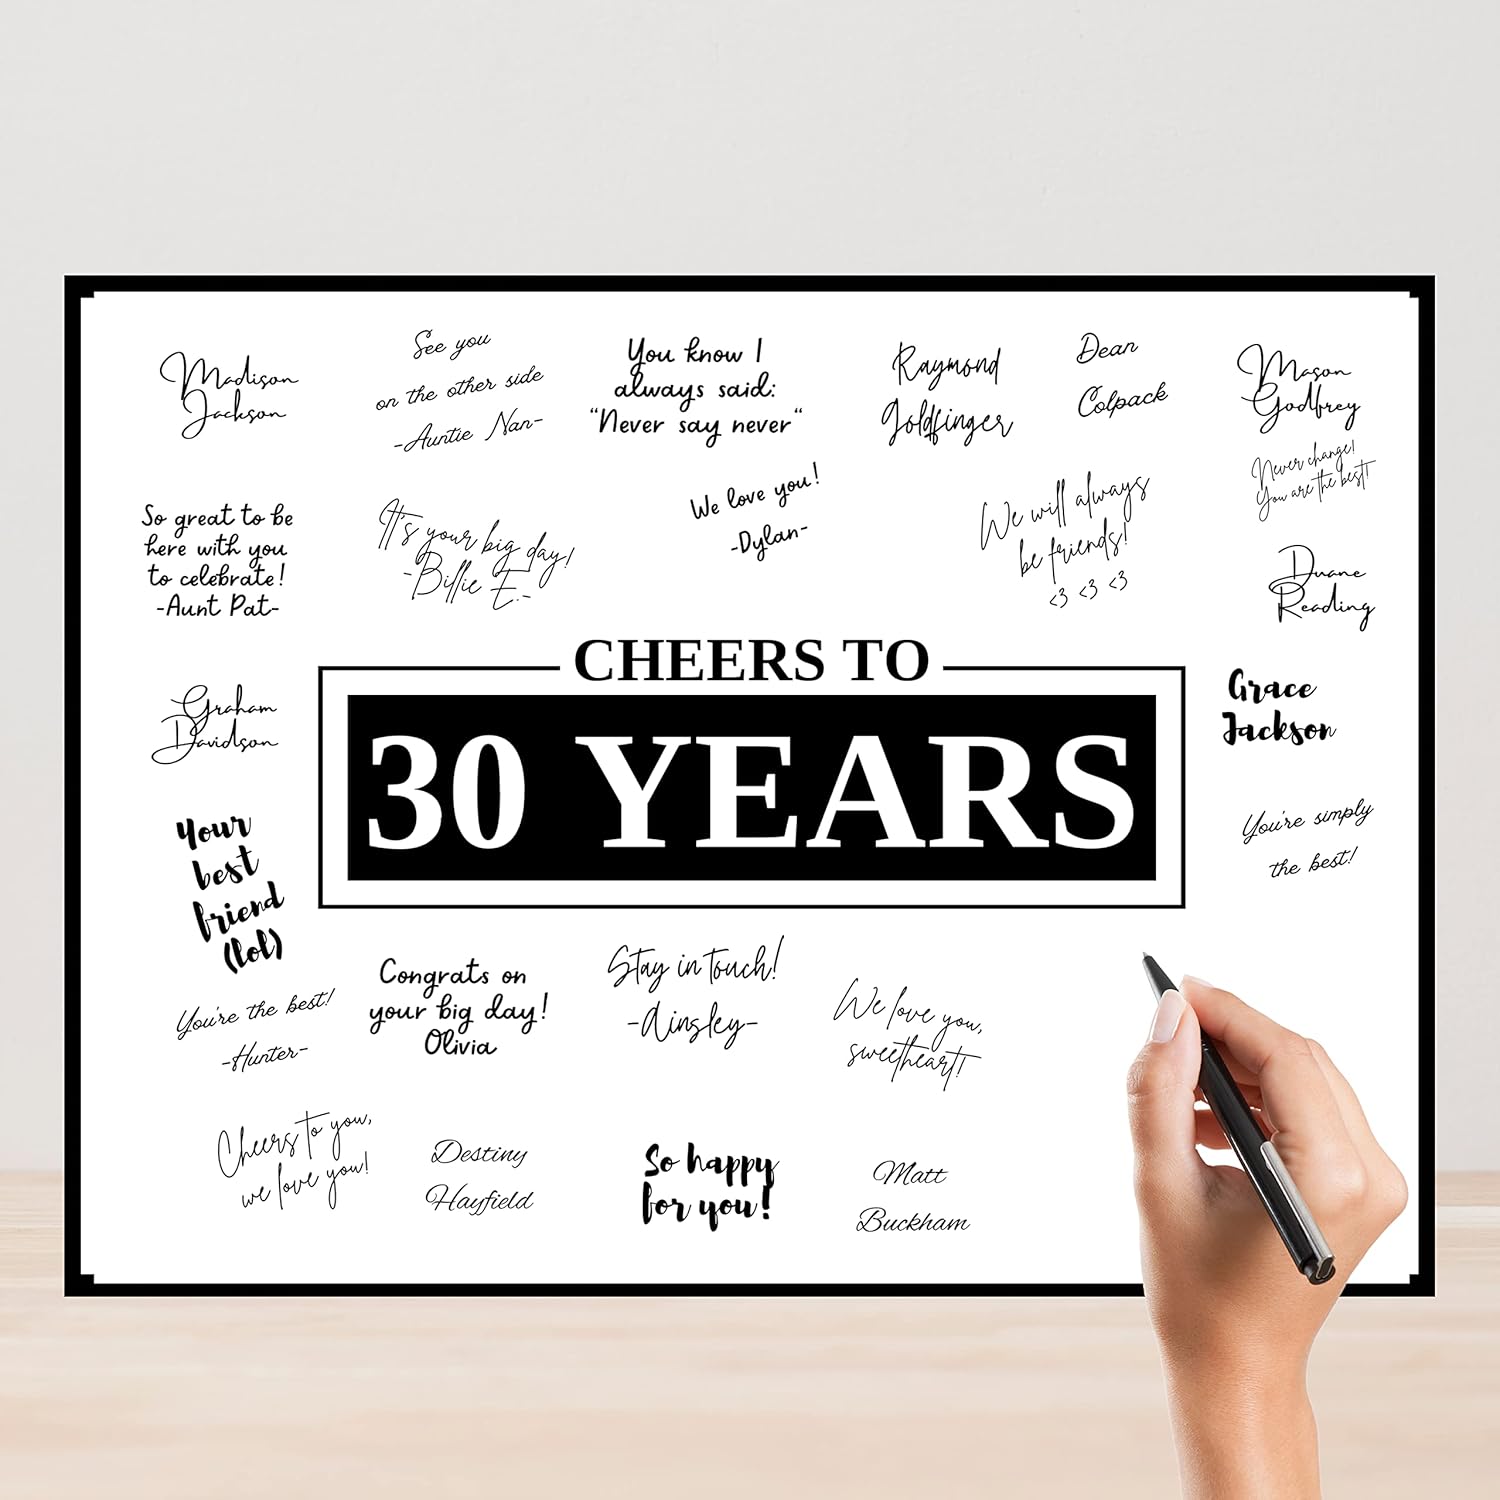 Madison
Jackson
See you
on the other side
-Auntie Nan-
You know I
always said:
"Never say never"
Raymond
Goldfinger
Dean
Colpack
Mason
Godfrey
Never change!
You are the best!
So great to be
here with you
to celebrate!
-Aunt Pat-
It's your big day!
-Billie E.-
We love you!
-Dylan-
We will always
be friends!
<3 <3 <3
Duane
Reading
Graham
Davidson
CHEERS TO
30 YEARS
Grace
Jackson
Your
best
friend
(lol)
You're simply
the best!
You're the best!
-Hunter-
Congrats on
your big day!
Olivia
Stay in touch!
-Ainsley-
We love you,
sweetheart!
Cheers to you,
we love you!
Destiny
Hayfield
So happy
for you!
Matt
Buckham